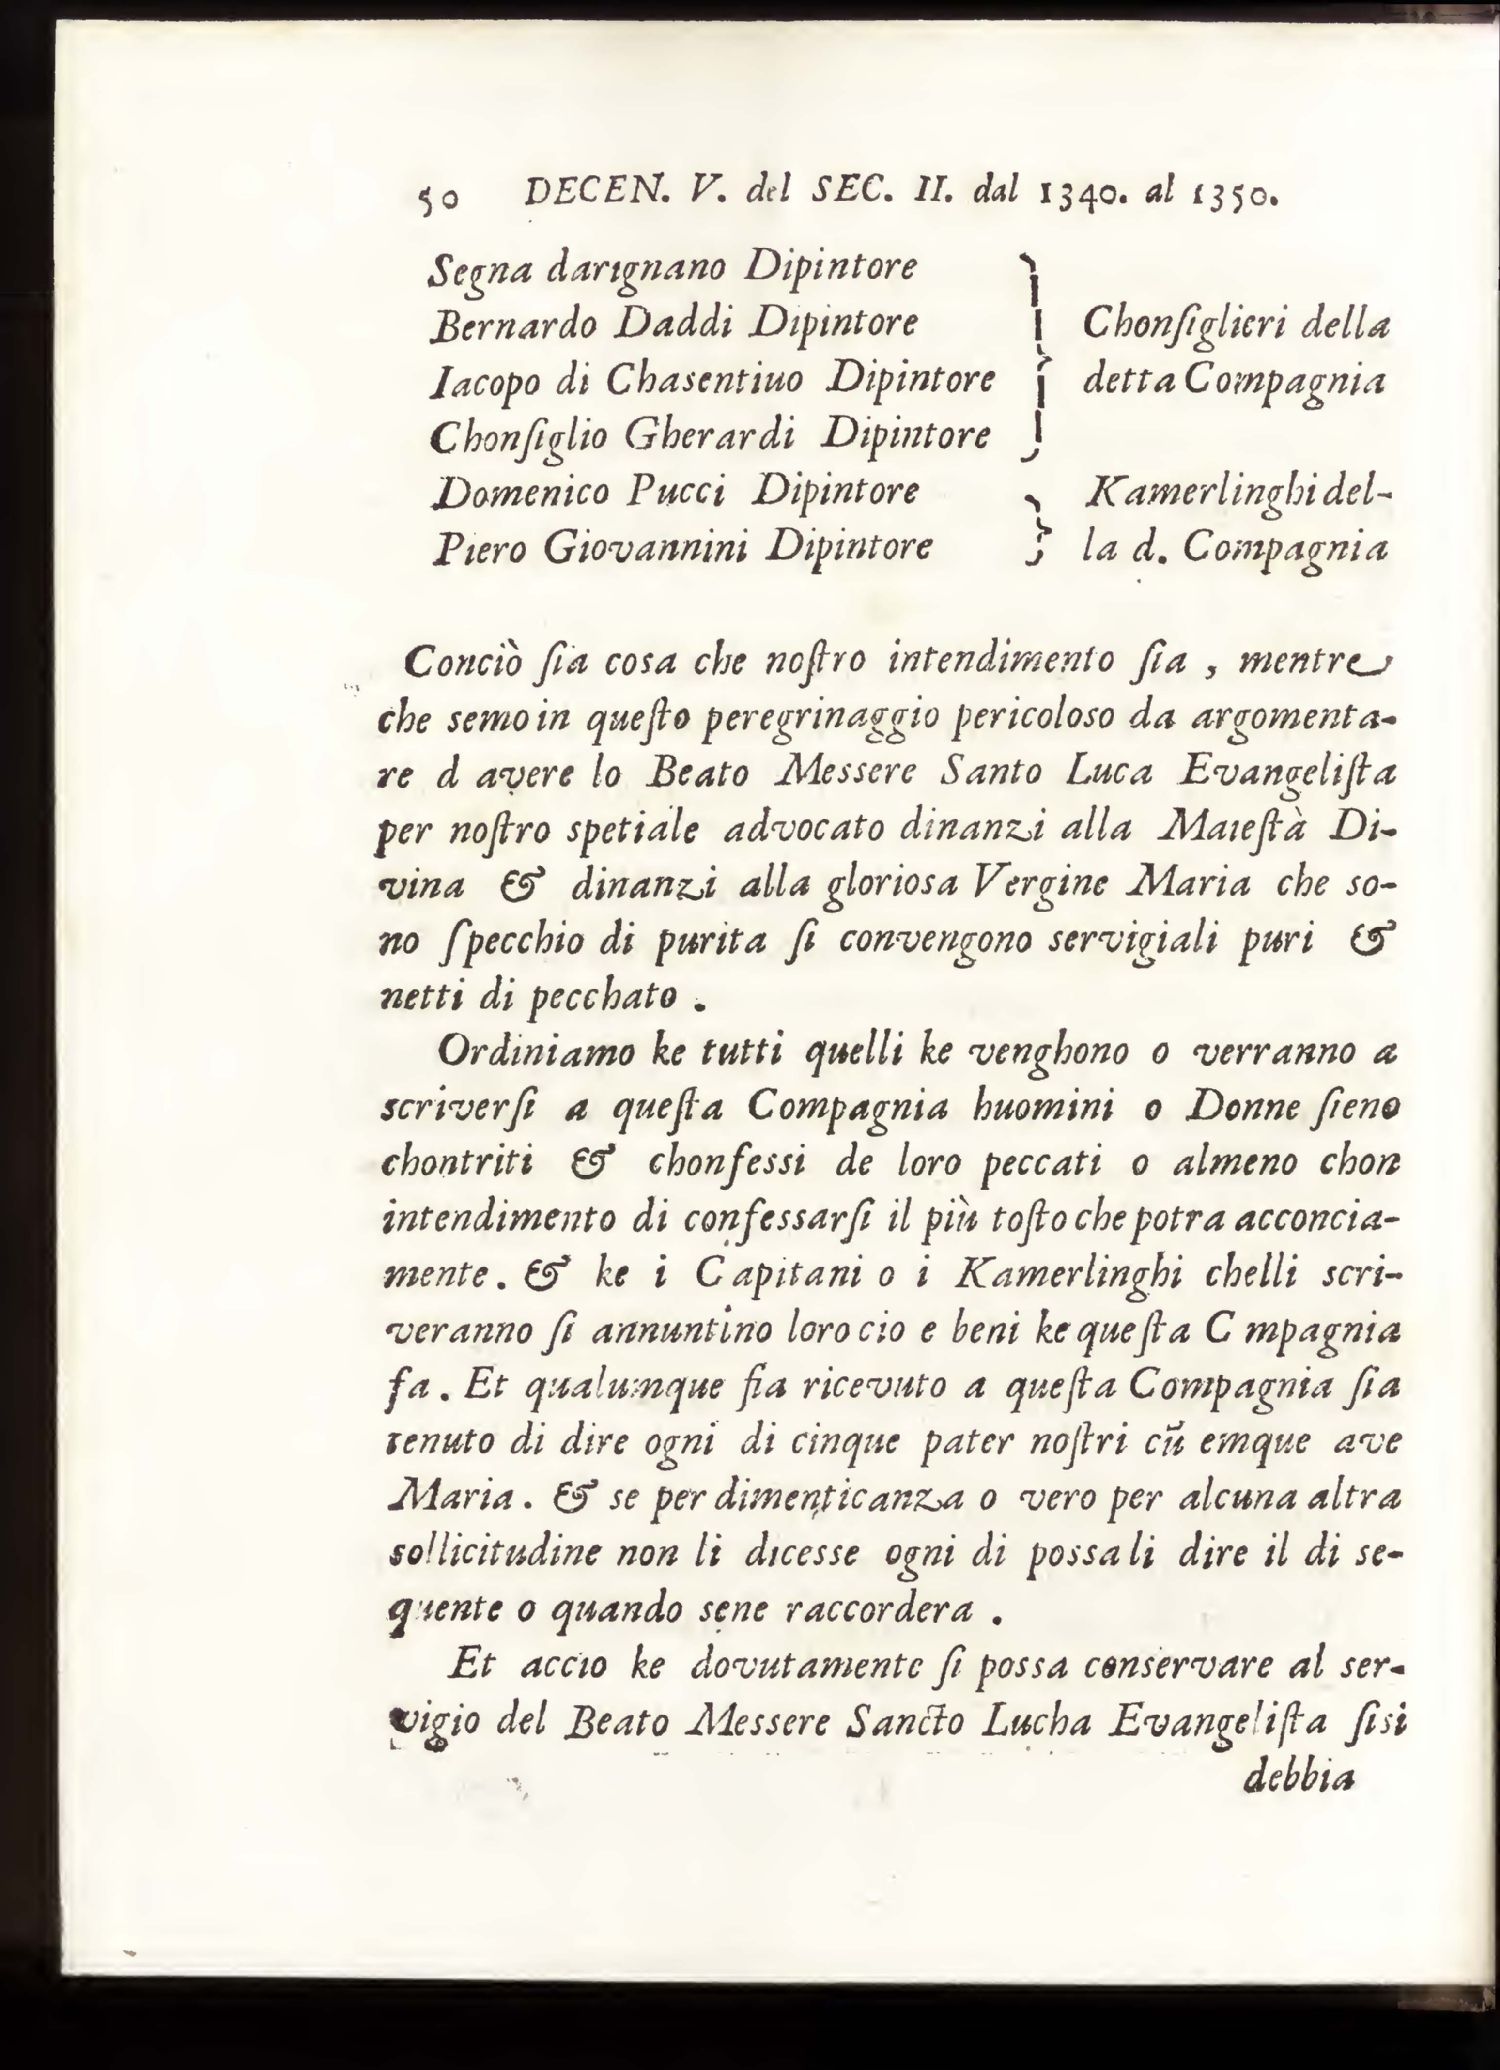 50 DECEN. V. del SEC. II. dal 1340. al 1350.
Segna darignano Dipintore
Bernardo Daddi Dipintore
Iacopo di Chasentiuo Dipintore
Chonſiglio Gherardi Dipintore
Chonſiglieri della
detta Compagnia
Domenico Pucci Dipintore
Piero Giovannini Dipintore
Kamerlinghi del-
la d. Compagnia
Conciò ſia cosa che noſtro intendimento ſia , mentre
che semo in queſto peregrinaggio pericoloso da argomenta-
re d avere lo Beato Messere Santo Luca Evangeliſta
per noſtro spetiale advocato dinanzi alla Maieſtà Di-
vina & dinanzi alla gloriosa Vergine Maria che so-
no ſpecchio di purita ſi convengono servigiali puri &
netti di pecchato .
Ordiniamo ke tutti quelli ke venghono o verranno a
scriverſi a queſta Compagnia huomini o Donne ſieno
chontriti & chonfessi de loro peccati o almeno chon
intendimento di confessarſi il più toſto che potra acconcia-
mente . & ke i Capitani o i Kamerlinghi chelli scri-
veranno ſi annuntino loro cio e beni ke queſta C mpagnia
fa . Et qualumque fia ricevuto a queſta Compagnia ſia
tenuto di dire ogni di cinque pater noſtri cũ emque ave
Maria . & se per dimenticanza o vero per alcuna altra
sollicitudine non li dicesse ogni di possa li dire il di se-
quente o quando sene raccordera .
Et accio ke dovutamente ſi possa conservare al ser-
vigio del Beato Messere Sancto Lucha Evangeliſta ſisi
debbia